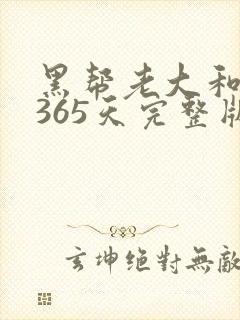 黑帮老大和
365天完整版
玄坤绝對無敵